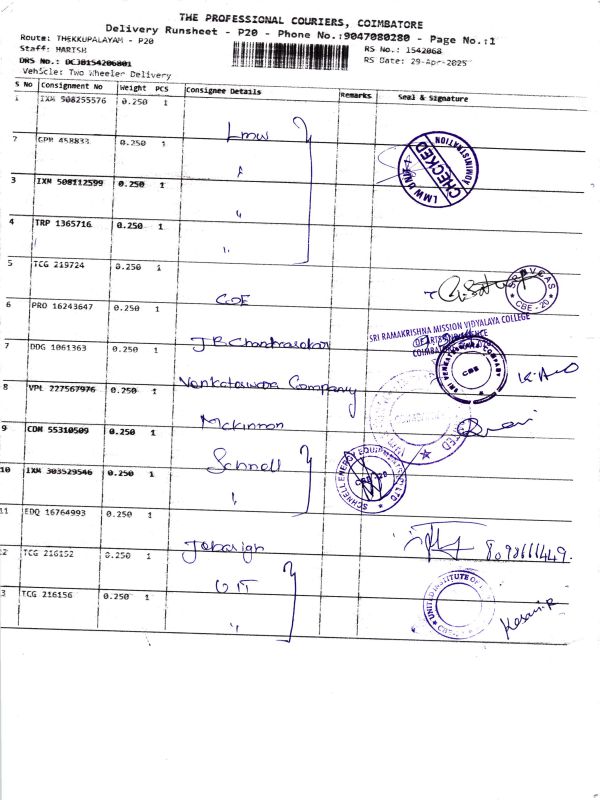 THE PROFESSIONAL COURIERS, COIMBATORE
Delivery Runsheet - P20 - Phone No.:9047080280 - Page No.:1
Route: THEKKUPALAYAM - P20
RS No.: 1542068
Staff: HARISH
RS Date: 29-Apr-2025
DRS No.: DCJB154206801
Vehicle: Two Wheeler Delivery
S No Consignment No Weight PCS Consignee Details Remarks Seal & Signature
1 IXM 508255576 0.250 1
Lmw
2 GPM 458833 0.250 1
"
LMW UNIT CHECKED ADMINISTRATION
3 IXM 508112599 0.250 1
"
4 TRP 1365716 0.250 1
"
5 TCG 219724 0.250 1
COE
SRKVCAS
* CBE - 20 *
6 PRO 16243647 0.250 1
SRI RAMAKRISHNA MISSION VIDYALAYA COLLEGE
OF ARTS SCIENCE
7 DDG 1061363 0.250 1
J.R. Chandrasekar
SRI VENKATESWARA COMPANY
CBE
8 VPL 227567976 0.250 1
Venkateswara Company
9 CDM 55310509 0.250 1
Mckinnon
10 IXM 303529546 0.250 1
Schnell
"
SCHNELL ENERGY EQUIPMENTS (P) LTD
11 EDQ 16764993 0.250 1
2 TCG 216152 0.250 1
UIT
3 TCG 216156 0.250 1
"
UNITED INSTITUTE OF
Kesavi.R